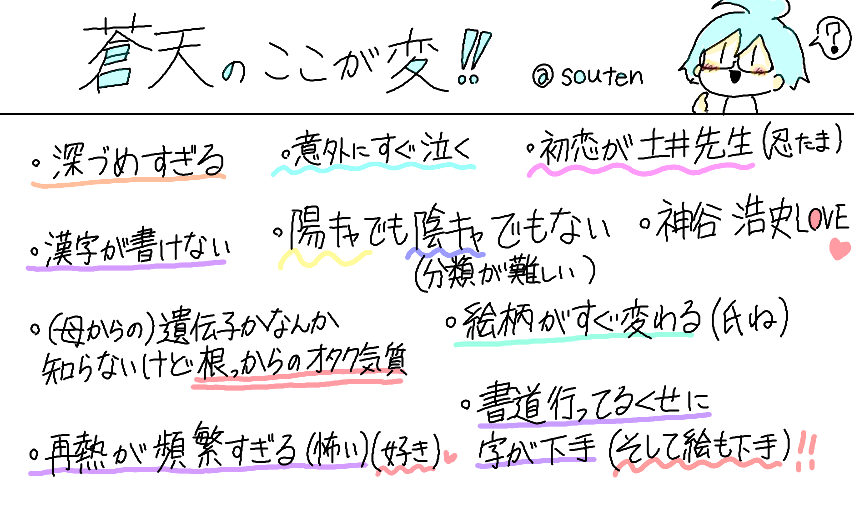 蒼天のここが変!!
@souten
?
。深づめすぎる
。意外にすぐ泣く
。初恋が土井先生(忍たま)
。漢字が書けない
。陽キャでも陰キャでもない
(分類が難しい)
。神谷浩史LOVE
。(母からの)遺伝子かなんか
知らないけど根っからのオタク気質
。絵柄がすぐ変わる(氏ね)
。再熱が頻繁すぎる(怖い)(好き)
。書道行ってるくせに
字が下手(そして絵も下手)!!